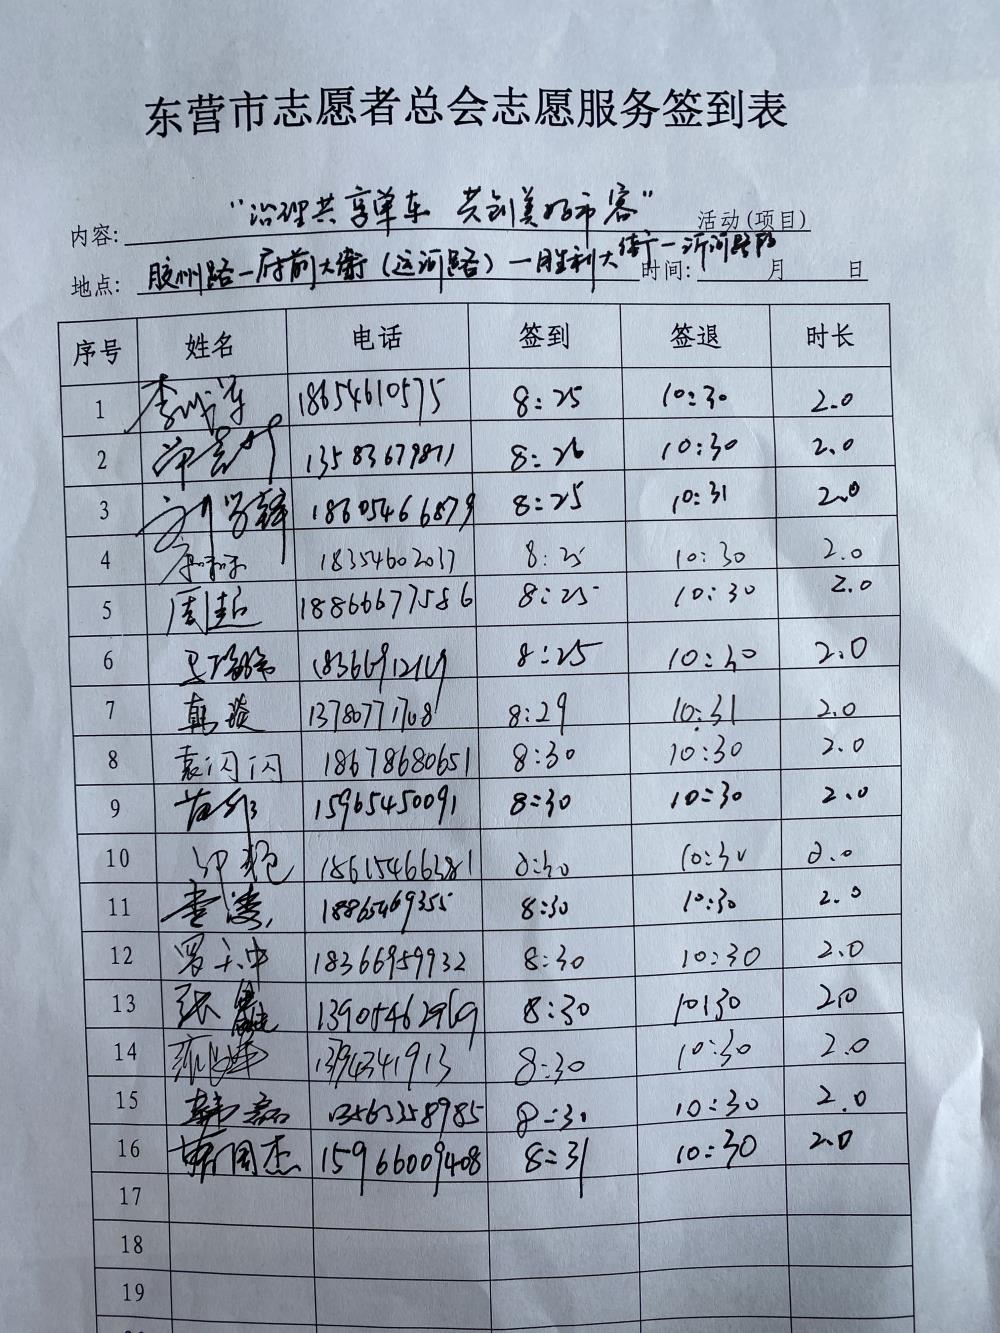 东营市志愿者总会志愿服务签到表
内容: "治理共享单车 共创美好市容" 活动(项目)
地点: 胶州路一府前大街(运河路)一胜利大街一沂河路 时间: 月 日
序号 姓名 电话 签到 签退 时长
1 李 军 18654610575 8:25 10:30 2.0
2 13583679871 8:26 10:30 2.0
3 18605466879 8:25 10:31 2.0
4 18354602037 8:25 10:30 2.0
5 周 18866677586 8:25 10:30 2.0
6 8:25 10:30 2.0
7 韩 13780771708 8:29 10:31 2.0
8 袁闪闪 18678680651 8:30 10:30 2.0
9 15965450091 8:30 10:30 2.0
10 8:30 10:30 2.0
11 李 18865469355 8:30 10:30 2.0
12 罗 中 18366959932 8:30 10:30 2.0
13 张 13905462969 8:30 10:30 2.0
14 8:30 10:30 2.0
15 韩磊 13563358985 8:30 10:30 2.0
16 韩国杰 15966009408 8:31 10:30 2.0
17
18
19